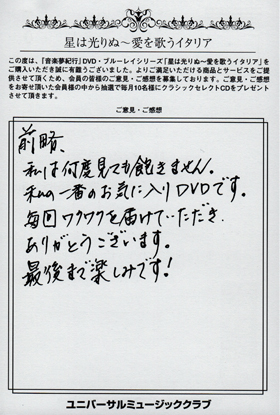 星は光りぬ～愛を歌うイタリア
この度は、『音楽夢紀行』DVD・ブルーレイシリーズ「星は光りぬ～愛を歌うイタリア」を
ご購入いただき誠に有難うございました。よりご満足いただける商品とサービスをご提
供させて頂くため、会員の皆様のご意見・ご感想を募集しております。ご意見・ご感想
をお寄せ頂いた会員様の中から抽選で毎月10名様にクラシックセレクトCDをプレゼント
させて頂きます。
ご意見・ご感想
前略、
私は何度見ても飽きません。
私の一番のお気に入りDVDです。
毎回ワクワクを届けていただき、
ありがとうございます。
最後まで楽しみです!
ユニバーサルミュージッククラブ